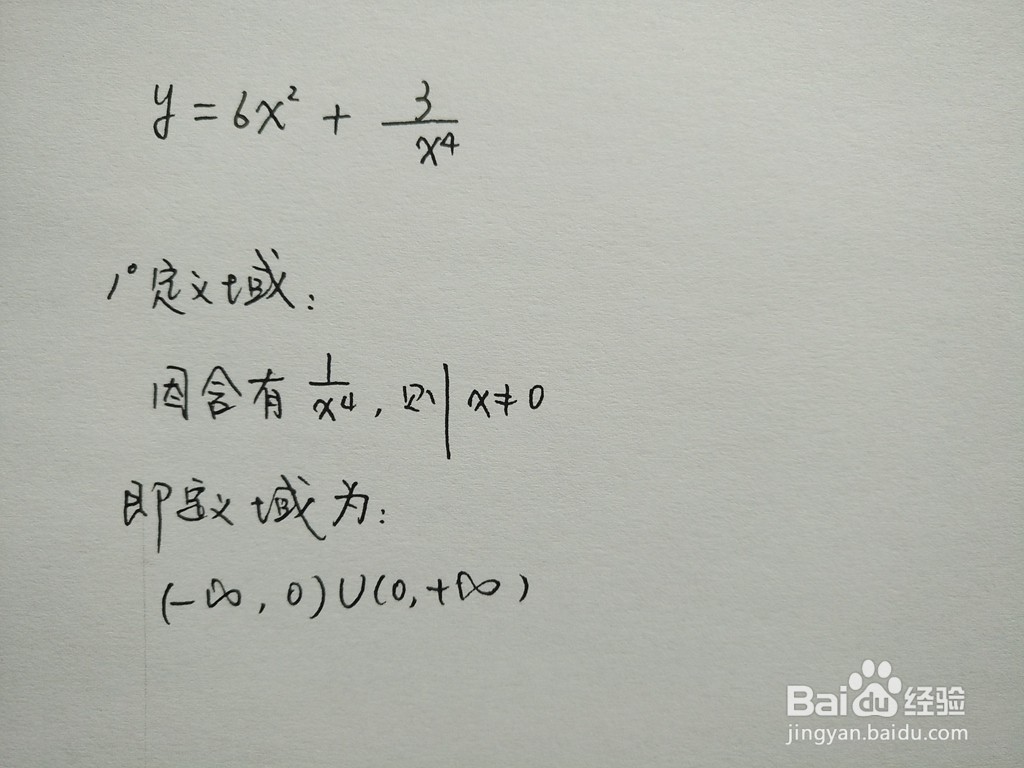 y = 6x² + 3/x⁴
1° 定义域:
因含有 1/x⁴, 则 x≠0
即定义域为:
(-∞, 0)∪(0, +∞)
Baidu经验
jingyan.baidu.com